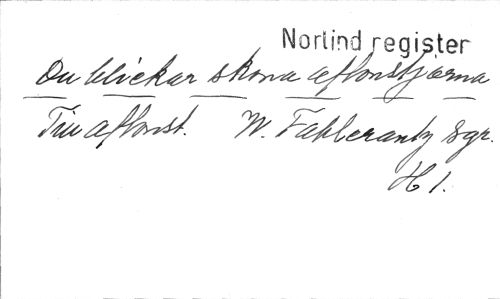 Norlind register
Du blickar sköna aftonstjärna
Till aftonst. W. Fahlcrantz Sgr.
H 1.